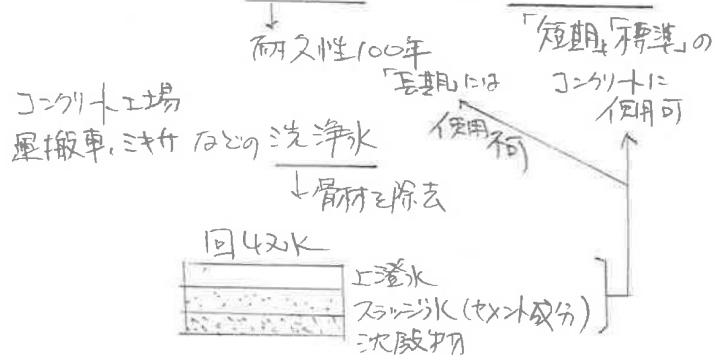 耐久性100年
「短期」「標準」の
コンクリートに
使用可
「長期」には
使用不可
コンクリート工場
運搬車、ミキサ などの 洗浄水
骨材を除去
回収水
上澄水
スラッジ水(セメント成分)
沈殿物